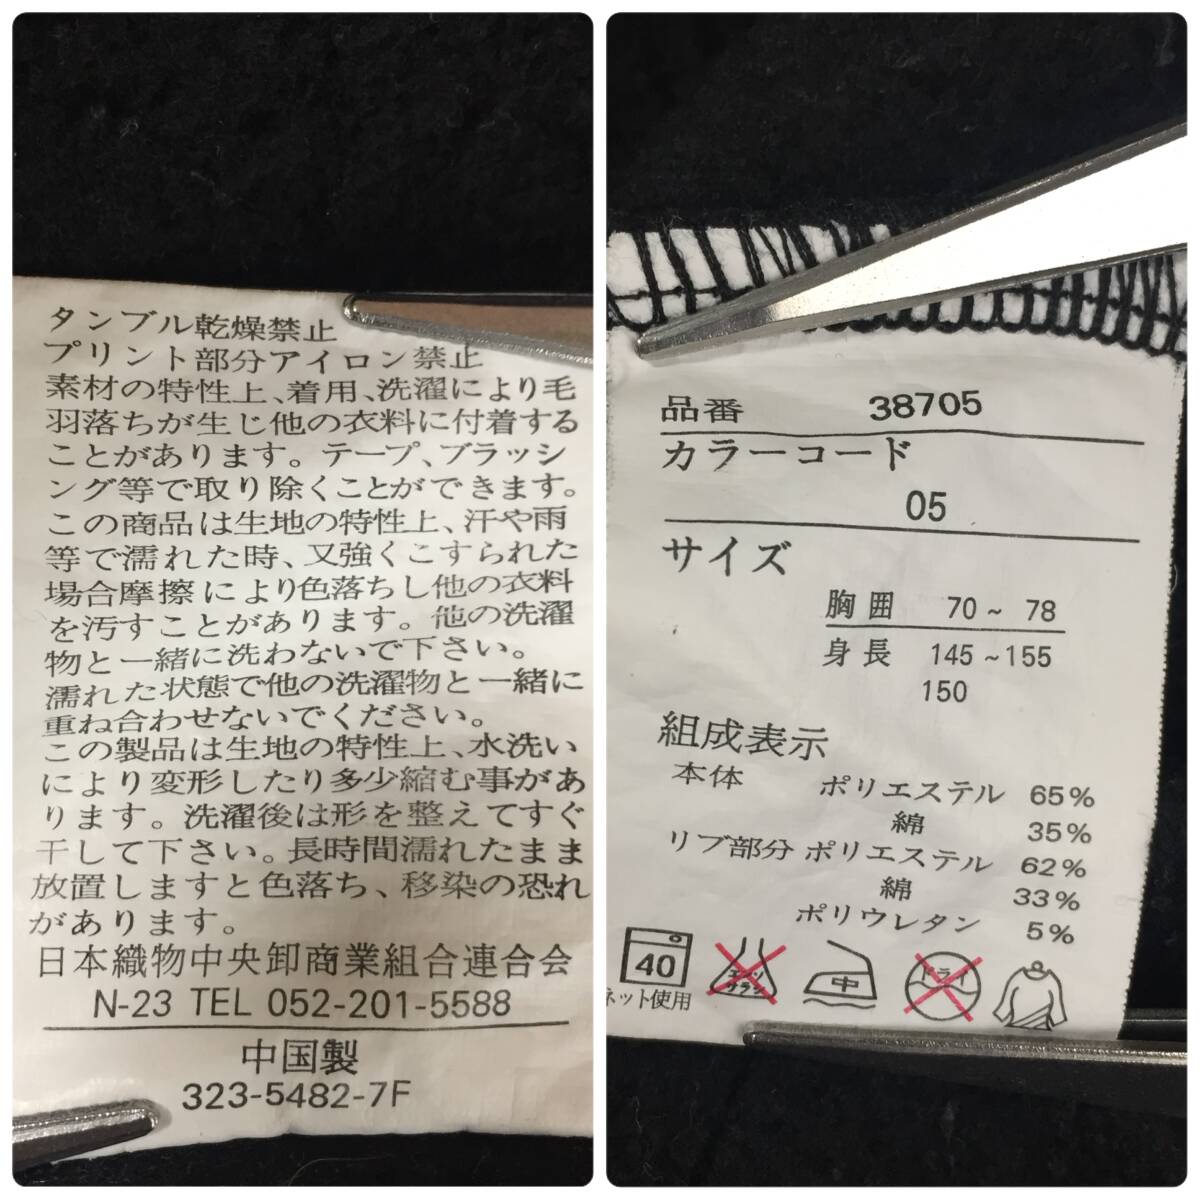 タンブル乾燥禁止
プリント部分アイロン禁止
素材の特性上、着用、洗濯により毛
羽落ちが生じ他の衣料に付着する
ことがあります。テープ、ブラッシ
ング等で取り除くことができます。
この商品は生地の特性上、汗や雨
等で濡れた時、又強くこすられた
場合摩擦により色落ちし他の衣料
を汚すことがあります。他の洗濯
物と一緒に洗わないで下さい。
濡れた状態で他の洗濯物と一緒に
重ね合わせないでください。
この製品は生地の特性上、水洗い
により変形したり多少縮む事があ
ります。洗濯後は形を整えてすぐ
干して下さい。長時間濡れたまま
放置しますと色落ち、移染の恐れ
があります。
日本織物中央卸商業組合連合会
N-23 TEL 052-201-5588
中国製
323-5482-7F
品番 38705
カラーコード
05
サイズ
胸囲 70~ 78
身長 145~155
150
組成表示
本体 ポリエステル 65%
綿 35%
リブ部分 ポリエステル 62%
綿 33%
ポリウレタン 5%
40
エンソ
サラシ
中
ドライ
ネット使用